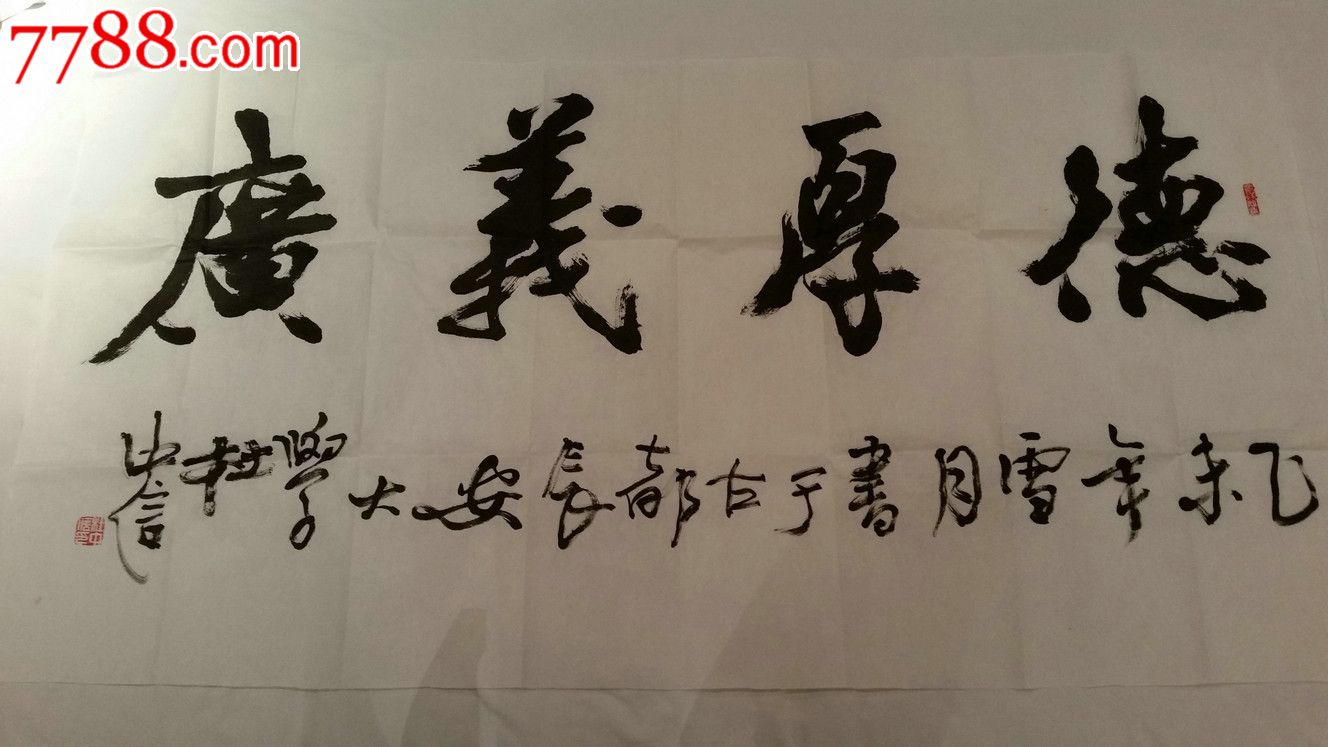 7788.com
德厚義廣
乙未年雪月書于古都長安大學杜中信